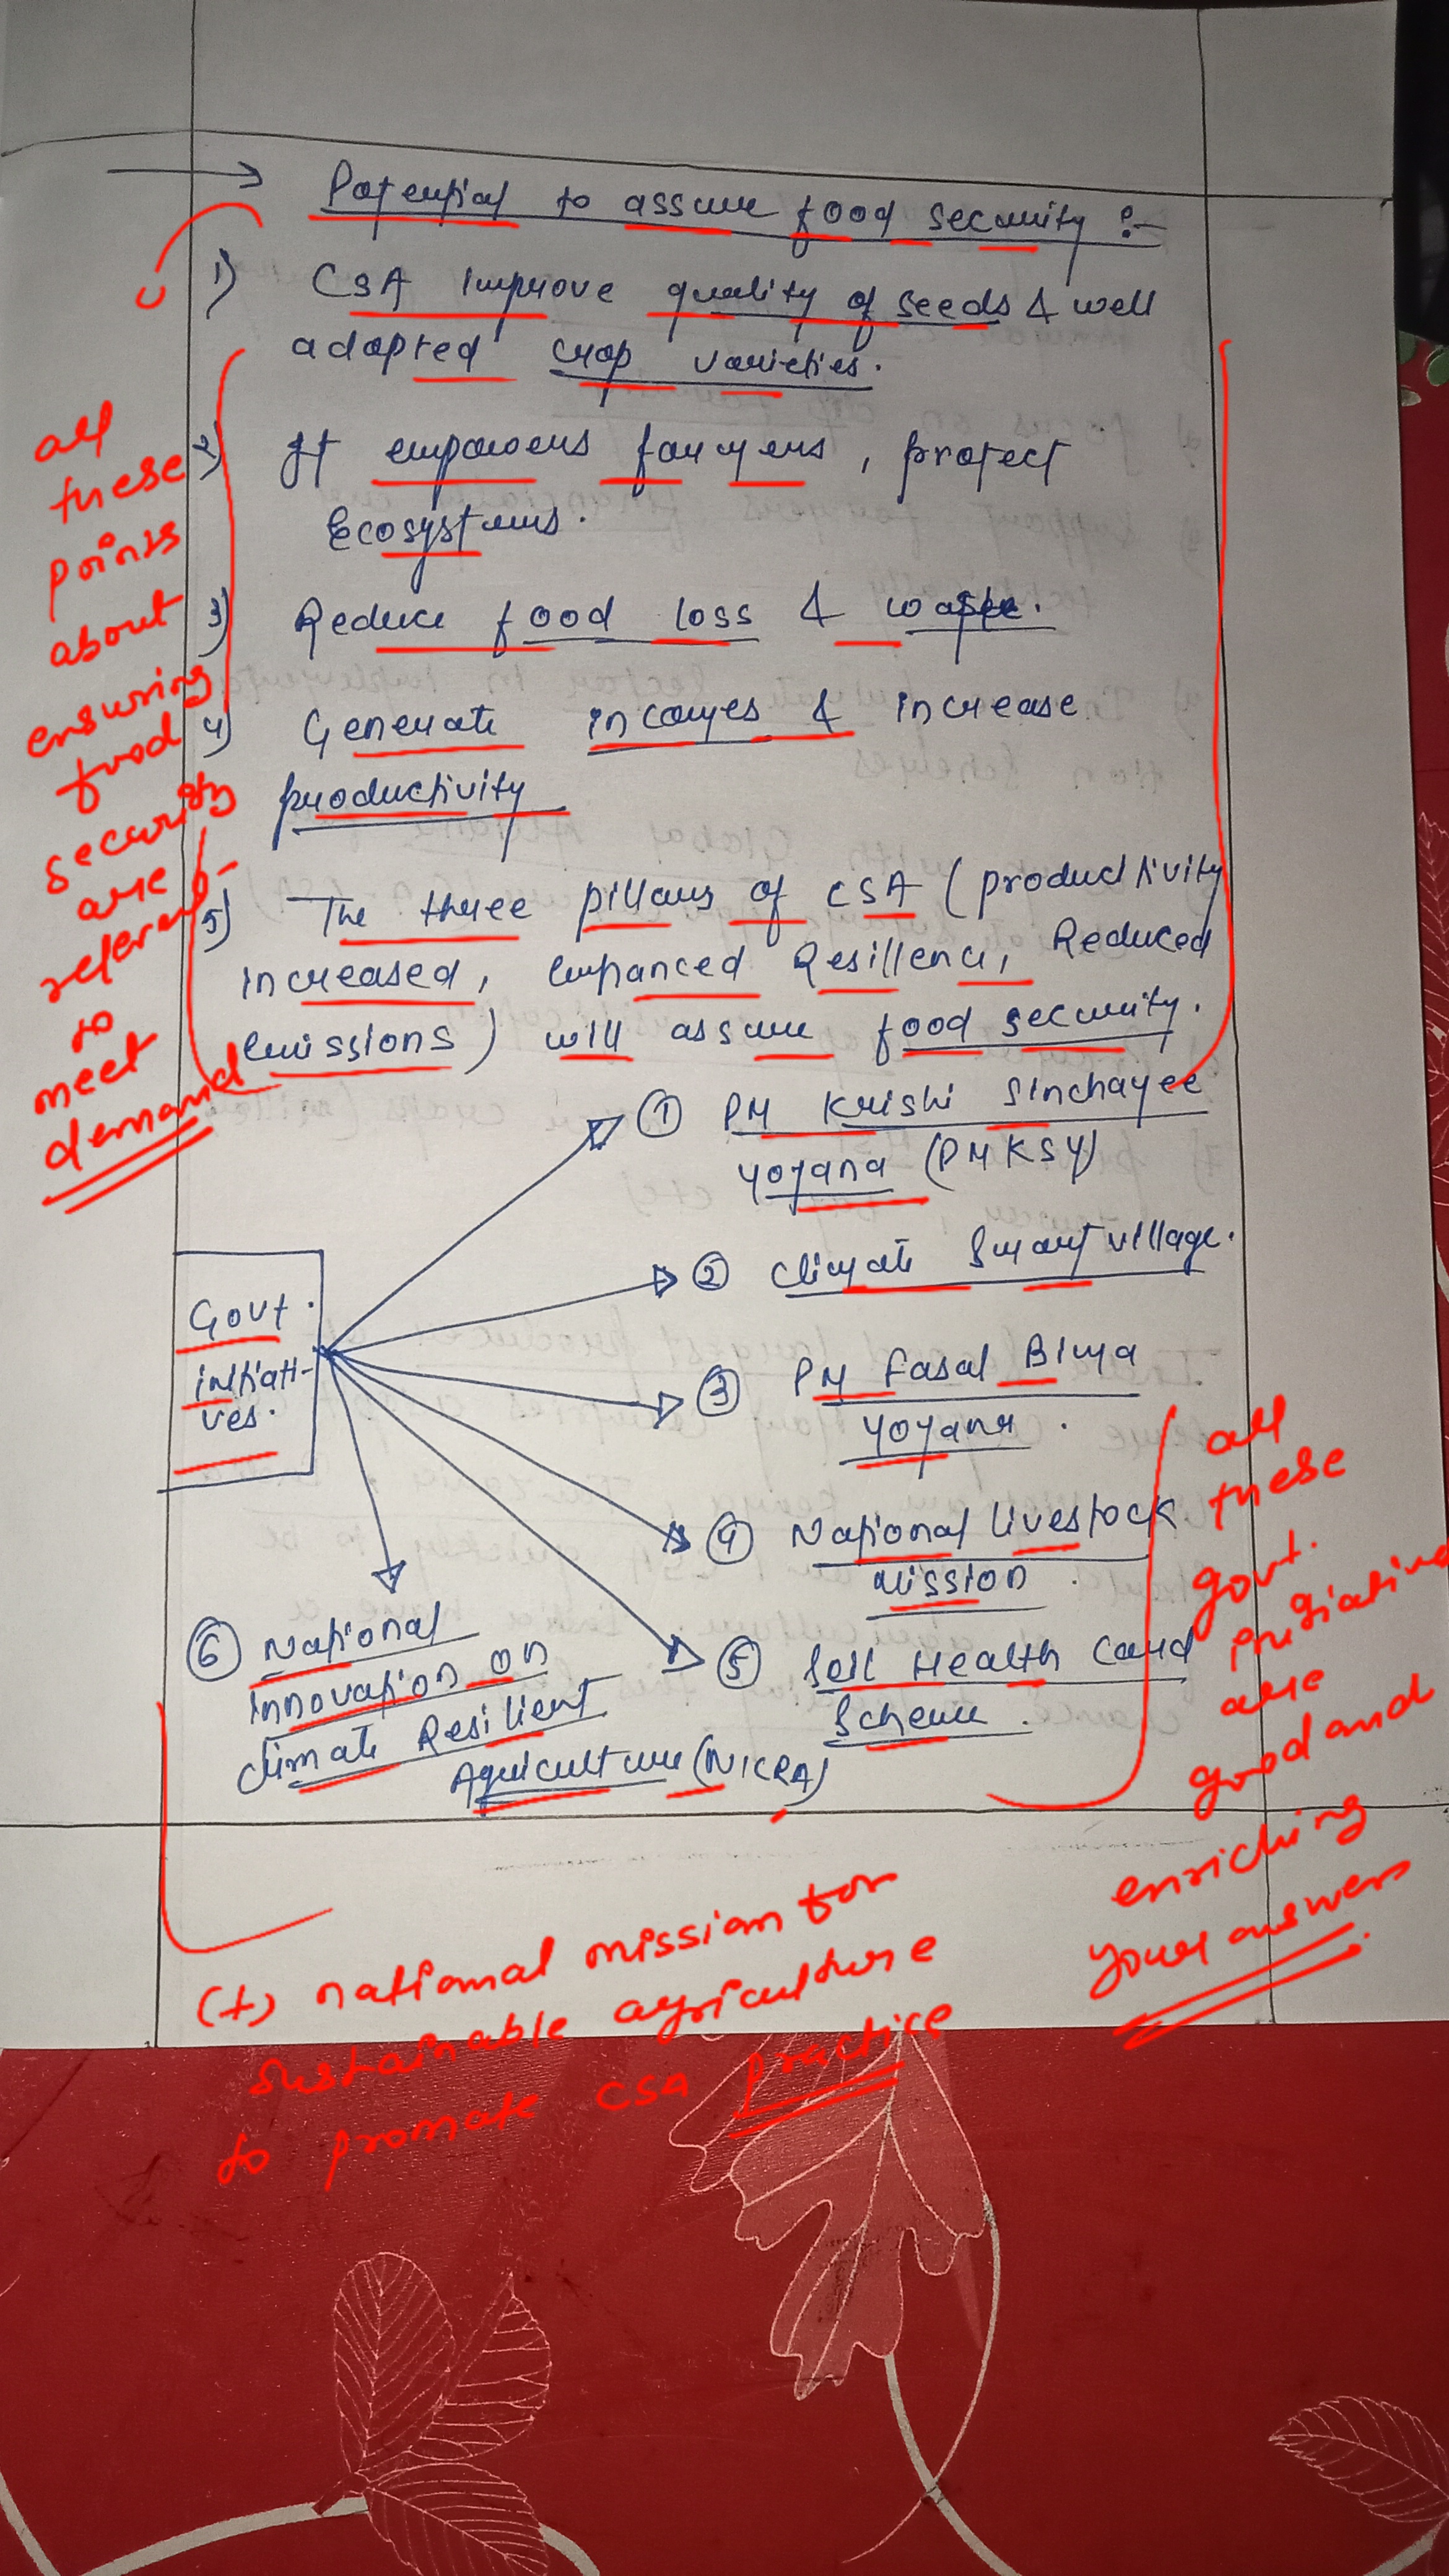 Potential to assure food security :-
1) CSA Improve quality of seeds & well
adapted crop varieties.
2) It empowers farmers, protect
Ecosystems.
3) Reduce food loss & waste.
4) Generate incomes & increase
productivity
5) The three pillars of CSA (productivity
increased, enhanced Resillence, Reduced
emissions) will assure food security.
all
these
points
about
ensuring
food
security
are
relevant
to
meet
demand
Govt.
initiati-
ves.
① PM Krishi Sinchayee
Yojana (PMKSY)
② Climate Smart village.
③ PM Fasal Bima
Yojana.
④ National Livestock
Mission.
⑤ Soil Health Card
Scheme.
⑥ National
Innovation on
Climate Resilient
Agriculture (NICRA)
all
these
govt.
initiative
are
good and
enriching
your answers
(+) national mission for
sustainable agriculture
to promote CSA practice